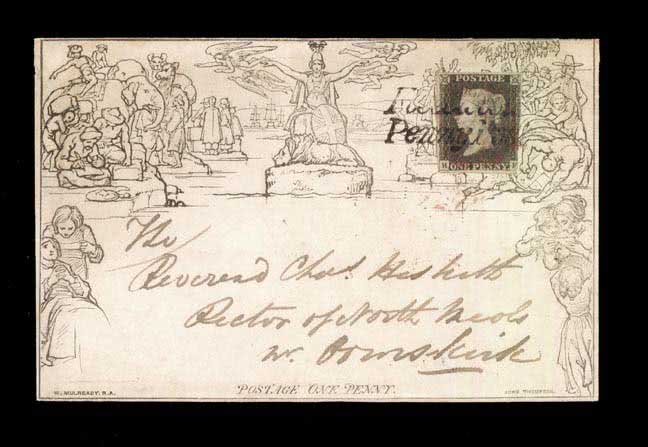 POSTAGE
ONE PENNY
The
Reverend Chas. Hesketh
Rector of North Meols
nr. Ormskirk
POSTAGE ONE PENNY.
W. MULREADY, R.A.
JOHN THOMPSON.